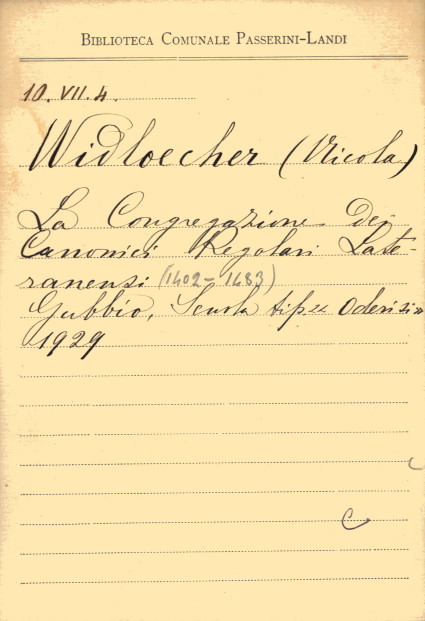 BIBLIOTECA COMUNALE PASSERINI-LANDI
10. VII. 4.
Widloecher (Nicola)
La Congregazione dei
Canonici Regolari Late-
ranensi (1402-1483)
Gubbio, Scuola tip. « Oderisi»
1929
C